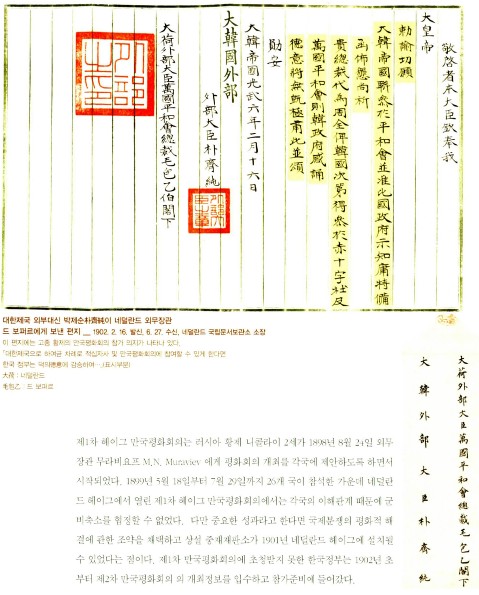 敬啓者本大臣欽奉我
大皇帝
勅諭切願
大韓帝國聯叅於平和會並准此國政府示知庸特備
函佈懇尚祈
貴總裁代為周全俾韓國次第得叅於赤十字社及
萬國平和會則韓政府感誦
德意將無既極肅此並頌
勛安
大韓帝國光武六年二月十六日
大韓國外部
外部大臣朴齊純
大荷外部大臣萬國平和會總裁毛包乙伯閣下
外部之印
대한제국 외부대신 박제순朴齊純이 네덜란드 외무장관
드 보파르에게 보낸 편지 __ 1902. 2. 16. 발신, 6. 27. 수신, 네덜란드 국립문서보관소 소장
이 편지에는 고종 황제의 만국평화회의 참가 의지가 나타나 있다.
「대한제국으로 하여금 차례로 적십자사 및 만국평화회의에 참여할 수 있게 한다면
한국 정부는 덕의德意에 감송하며…」(표시부분)
大荷 : 네덜란드
毛包乙 : 드 보파르
大荷外部大臣萬國平和會總裁毛包乙閣下
大韓外部大臣朴齊純
제1차 헤이그 만국평화회의는 러시아 황제 니콜라이 2세가 1898년 8월 24일 외무
장관 무라비요프 M.N. Muraviev 에게 평화회의 개최를 각국에 제안하도록 하면서
시작되었다. 1899년 5월 18일부터 7월 29일까지 26개 국이 참석한 가운데 네덜란
드 헤이그에서 열린 제1차 헤이그 만국평화회의에서는 각국의 이해관계 때문에 군
비축소를 협정할 수 없었다. 다만 중요한 성과라고 한다면 국제분쟁의 평화적 해
결에 관한 조약을 채택하고 상설 중재재판소가 1901년 네덜란드 헤이그에 설치될
수 있었다는 점이다. 제1차 만국평화회의에 초청받지 못한 한국정부는 1902년 초
부터 제2차 만국평화회의 의 개최정보를 입수하고 참가준비에 들어갔다.